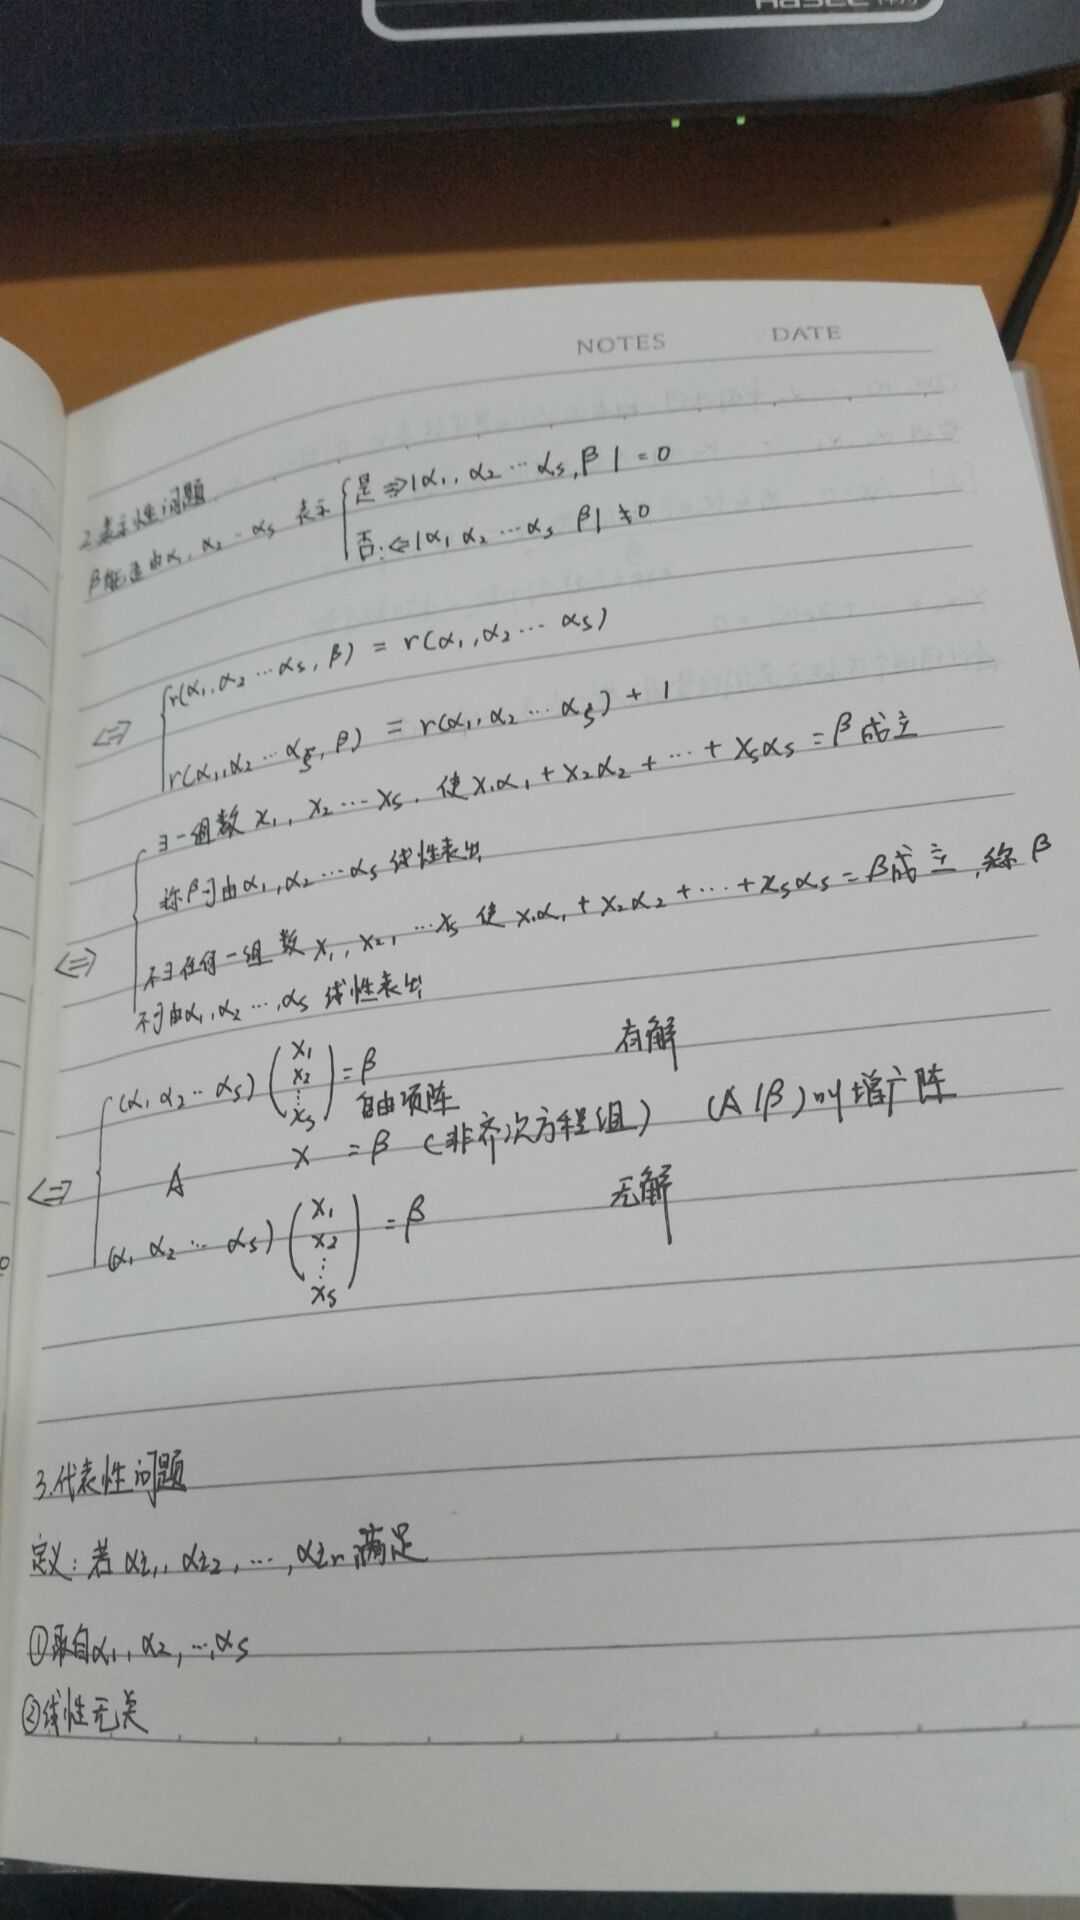 Hasee
NOTES DATE
2.表示性问题
β能否由α₁, α₂…αₛ 表示 { 是⇒|α₁, α₂…αₛ, β| = 0
否:⇐|α₁ α₂…αₛ β| ≠ 0
⇔ { r(α₁,α₂…αₛ, β) = r(α₁,α₂…αₛ)
r(α₁,α₂…αₛ, β) = r(α₁,α₂…αₛ) + 1
⇔ { ∃一组数 x₁, x₂…xₛ. 使x₁α₁+x₂α₂+…+xₛαₛ=β成立
称β可由α₁,α₂…αₛ线性表出
不∃任何一组数x₁,x₂,…xₛ 使x₁α₁+x₂α₂+…+xₛαₛ=β成立,称β
不可由α₁,α₂…,αₛ线性表出
⇔ { (α₁ α₂…αₛ) (x₁ x₂ ⋮ xₛ) = β 有解
自由项阵
A x = β (非齐次方程组) (A|β)叫增广阵
(α₁ α₂…αₛ) (x₁ x₂ ⋮ xₛ) = β 无解
3.代表性问题
定义:若αi₁, αi₂,…,αiᵣ满足
①取自α₁, α₂,…,αₛ
②线性无关